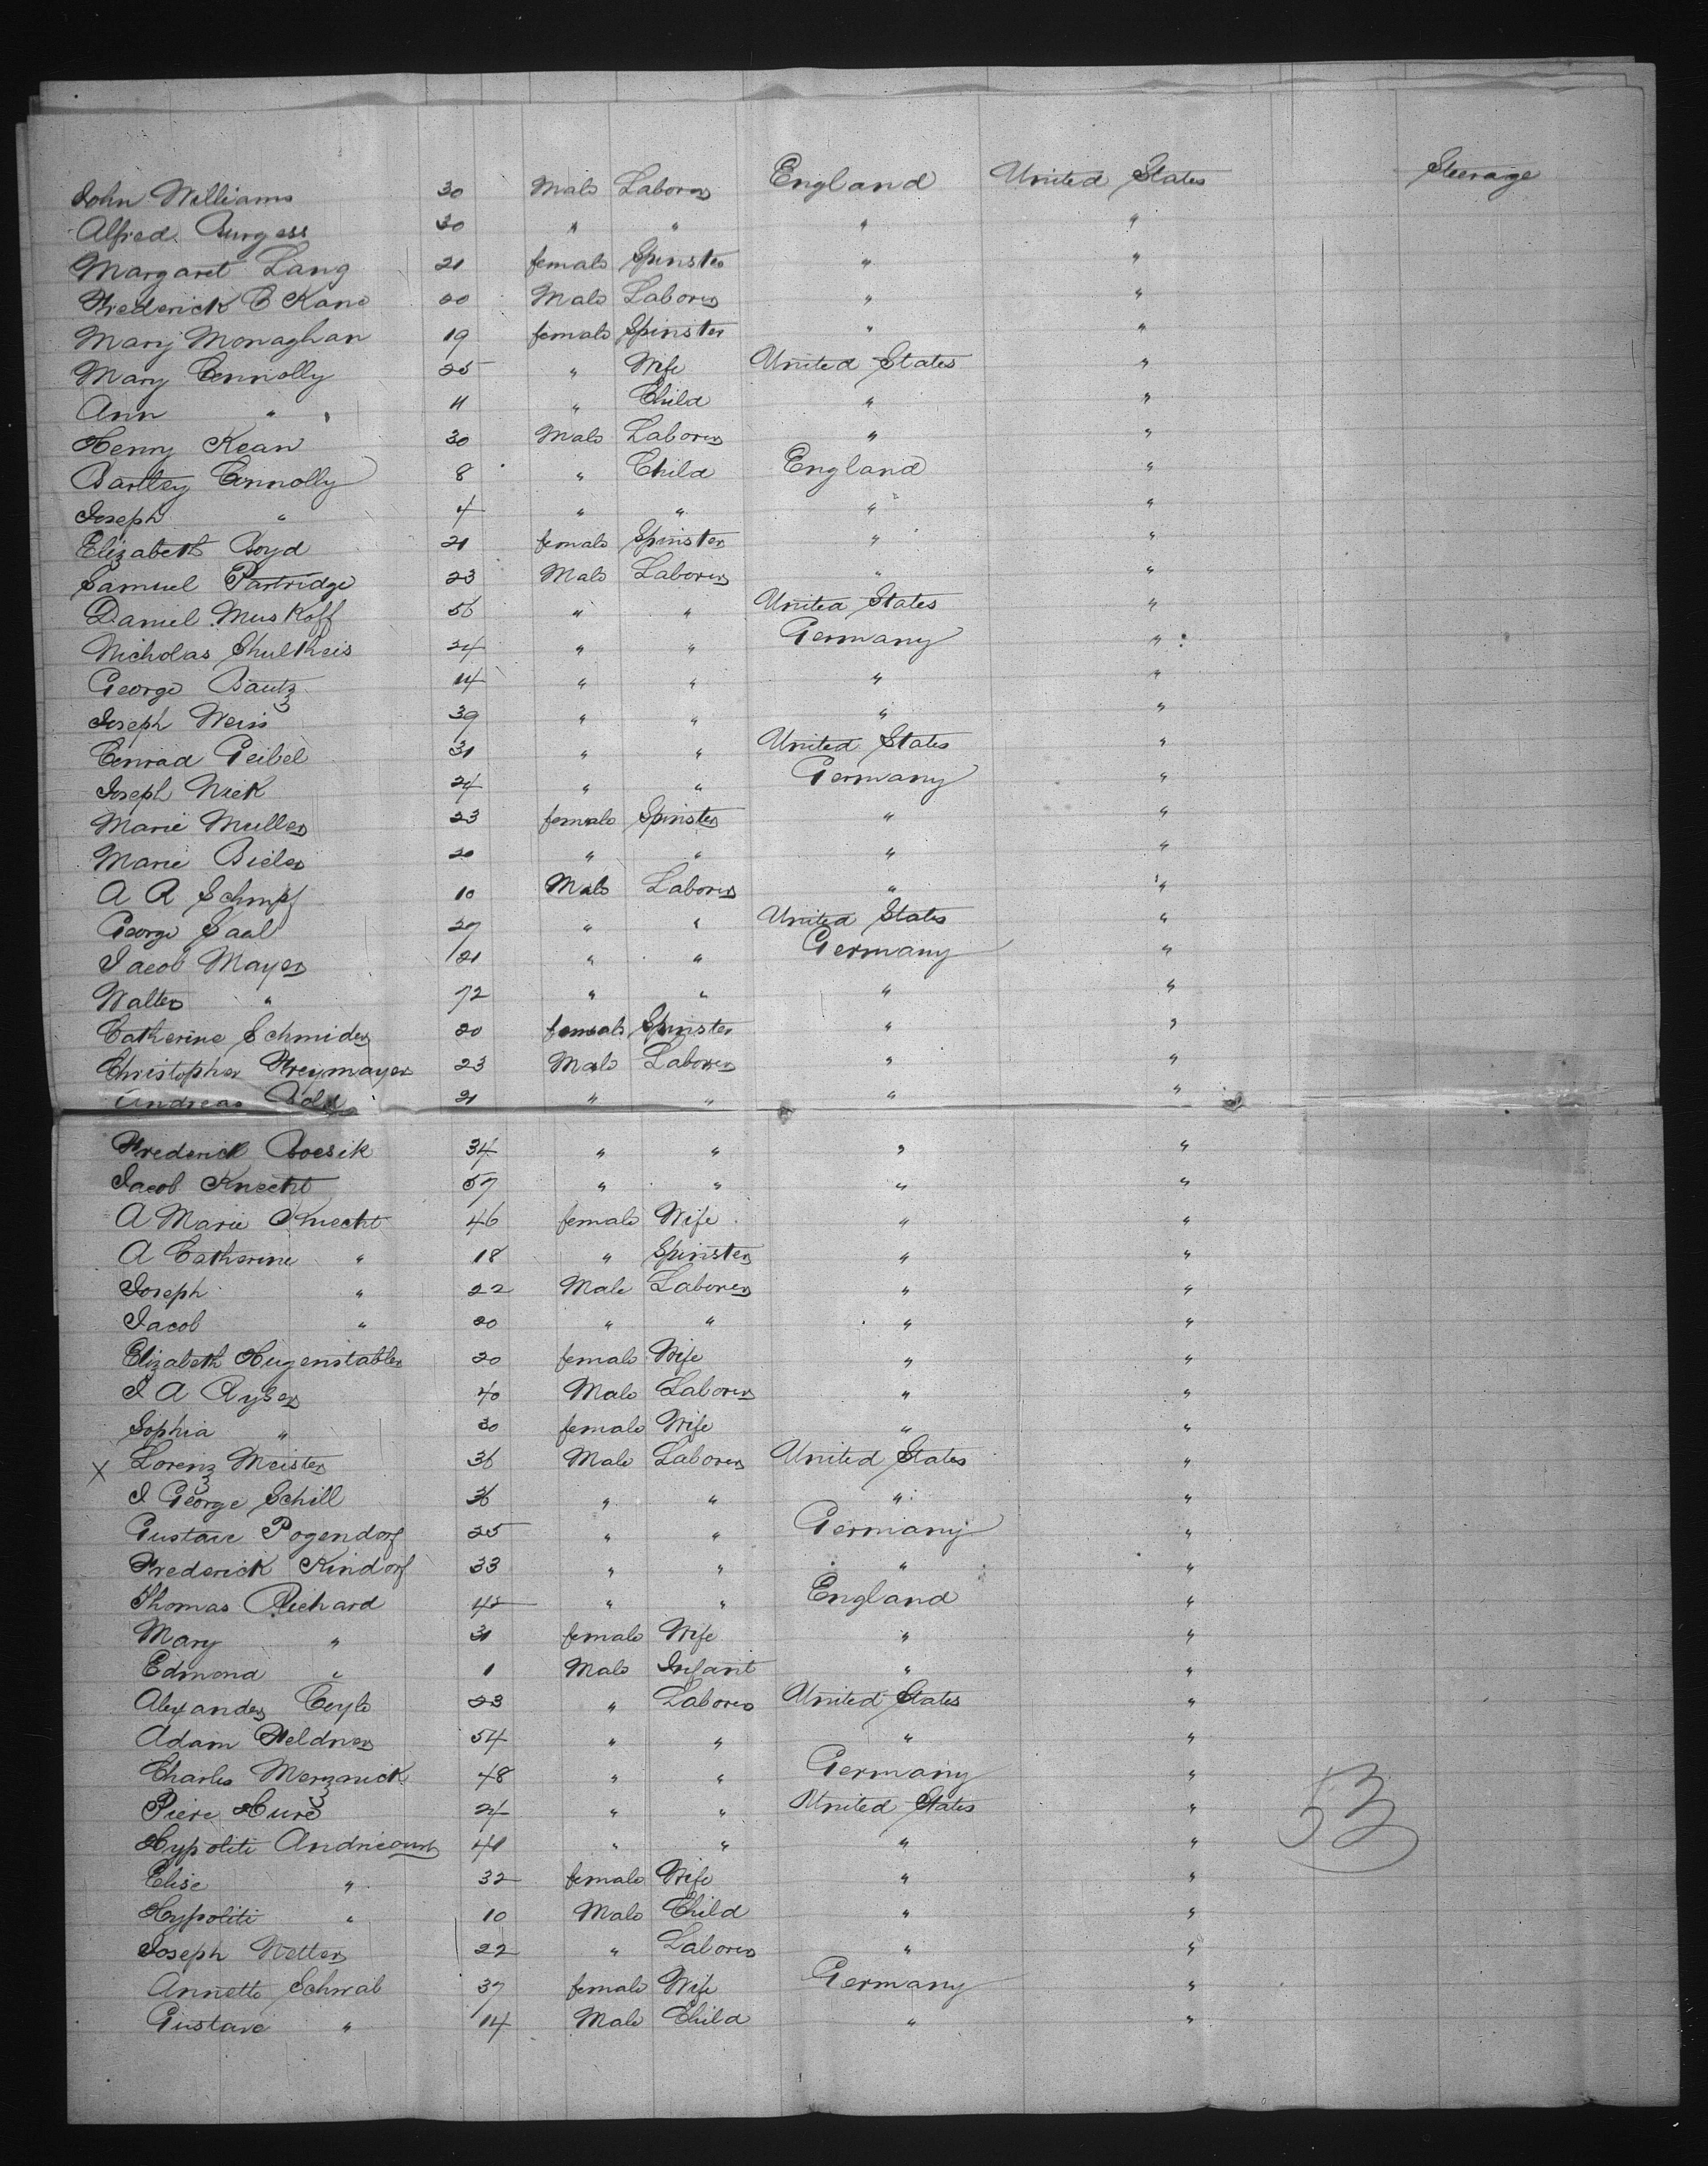 John Williams 30 Male Laborer England United States Steerage
Alfred Burgess 30 " " " "
Margaret Lang 21 female Spinster " "
Frederick C Kane Male Laborer " "
Mary Monaghan 19 female Spinster " "
Mary Connolly 25 " Wife United States "
Ann " 11 " Child " "
Henry Kean 30 Male Laborer " "
Bartley Connolly 8 " Child England "
Joseph " 4 " " " "
Elizabeth Boyd 21 female Spinster " "
Samuel Partridge 23 Male Laborer " "
Daniel Muskoff 56 " " United States "
Nicholas Shultheis 24 " " Germany "
George Bautz 14 " " " "
Joseph Weis 39 " " " "
Conrad Geibel 31 " " United States "
Joseph Nick 24 " " Germany "
Marie Muller 23 female Spinster " "
Marie Bieler 20 " " " "
A R Schmpf 10 Male Laborer " "
George Saal 29 " " United States "
Jacob Mayer 21 " " Germany "
Walter " 72 " " " "
Catherine Schmider 20 female Spinster " "
Christopher Freymayer 23 Male Laborer " "
Andreas 21 " " " "
Frederick Boesik 34 " " " "
Jacob Knecht 57 " " " "
A Marie Knecht 46 female Wife " "
A Catherine " 18 " Spinster " "
Joseph " 22 Male Laborer " "
Jacob " 20 " " " "
Elizabeth Hugenstabler 20 female Wife " "
J A Ryser 40 Male Laborer " "
Sophia " 30 female Wife " "
X Lorenz Meister 36 Male Laborer United States "
J George Schill 36 " " " "
Gustave Pogendorf 25 " " Germany "
Frederick Kindorf 33 " " " "
Thomas Richard 45 " " England "
Mary " 31 female Wife " "
Edmond " 1 Male Infant " "
Alexander Coyle 23 " Laborer United States "
Adam Feldner 54 " " " "
Charles Merzanick 48 " " Germany "
Piere Huré 24 " " United States "
Hypolite Andrieourt 41 " " " "
Elise " 32 female Wife " "
Hypolite " 10 Male Child " "
Joseph Netter 22 " Laborer " "
Annette Schwab 37 female Wife Germany "
Gustave " 14 Male Child " "
53